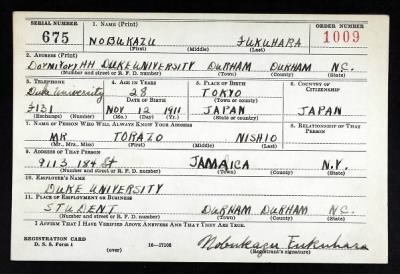 SERIAL NUMBER 1. NAME (Print) ORDER NUMBER
675 NOBUKAZU FUKUHARA 1009
(First) (Middle) (Last)
2. ADDRESS (Print)
Dormitory HH DUKE UNIVERSITY DURHAM DURHAM N.C.
(Number and street or R. F. D. number) (Town) (County) (State)
3. TELEPHONE 4. AGE IN YEARS 5. PLACE OF BIRTH 6. COUNTRY OF CITIZENSHIP
Duke University 28 TOKYO
DATE OF BIRTH (Town or county)
3131 NOV 12 1911 JAPAN JAPAN
(Exchange) (Number) (Mo.) (Day) (Yr.) (State or country)
7. NAME OF PERSON WHO WILL ALWAYS KNOW YOUR ADDRESS 8. RELATIONSHIP OF THAT PERSON
MR TORAZO NISHIO
(Mr., Mrs., Miss) (First) (Middle) (Last)
9. ADDRESS OF THAT PERSON
9113 184 St JAMAICA N.Y.
(Number and street or R. F. D. number) (Town) (County) (State)
10. EMPLOYER'S NAME
DUKE UNIVERSITY
11. PLACE OF EMPLOYMENT OR BUSINESS
STUDENT DURHAM DURHAM N.C.
(Number and street or R. F. D. number) (Town) (County) (State)
I AFFIRM THAT I HAVE VERIFIED ABOVE ANSWERS AND THAT THEY ARE TRUE.
REGISTRATION CARD
D. S. S. Form 1 (over) 16—17105 Nobukazu Fukuhara
(Registrant's signature)